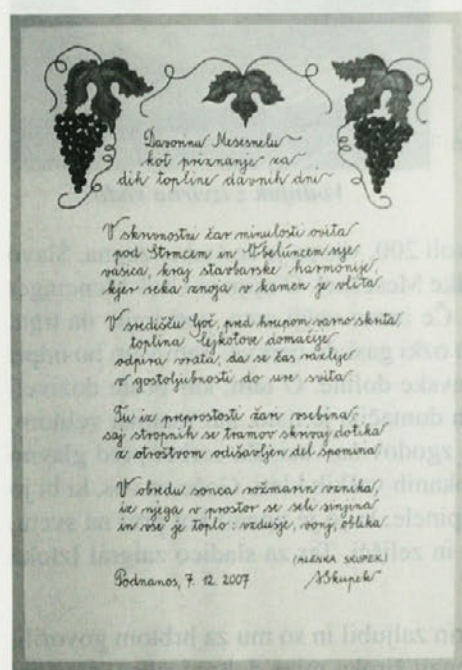 Davorinu Mesesnelu
kot priznanje za
dih topline davnih dni
V skrivnostni čar minulosti ovita
pod Strmcem in Ubeluncem sije
vasica, kraj stavbarske harmonije,
kjer seka znoja v kamen je vlita
V središču Goč, pred hrupom varno skrita
toplina Lejkotove domačije
odpira vrata, da se čas razlije
v gostoljubnosti do ure svita
Tu iz preprostosti žari vsebina,
saj stropnih se tramov skrivaj dotika
z otroštvom odišavljen del spomina
V obedu sonca rožmarin vznika,
iz njega v prostor se seli sinjina
in vse je toplo: vzdušje, vonj, oblika
(ALENKA SKUPEK)
Podnanos, 7. 12. 2007
ASkupek
koli 200,
Slavo
ke Mes
Če i
ozki
avske doline.
domačij
zgod
okanih
pinele
in zel
on zaljubil in so mu za hrbtom govoril